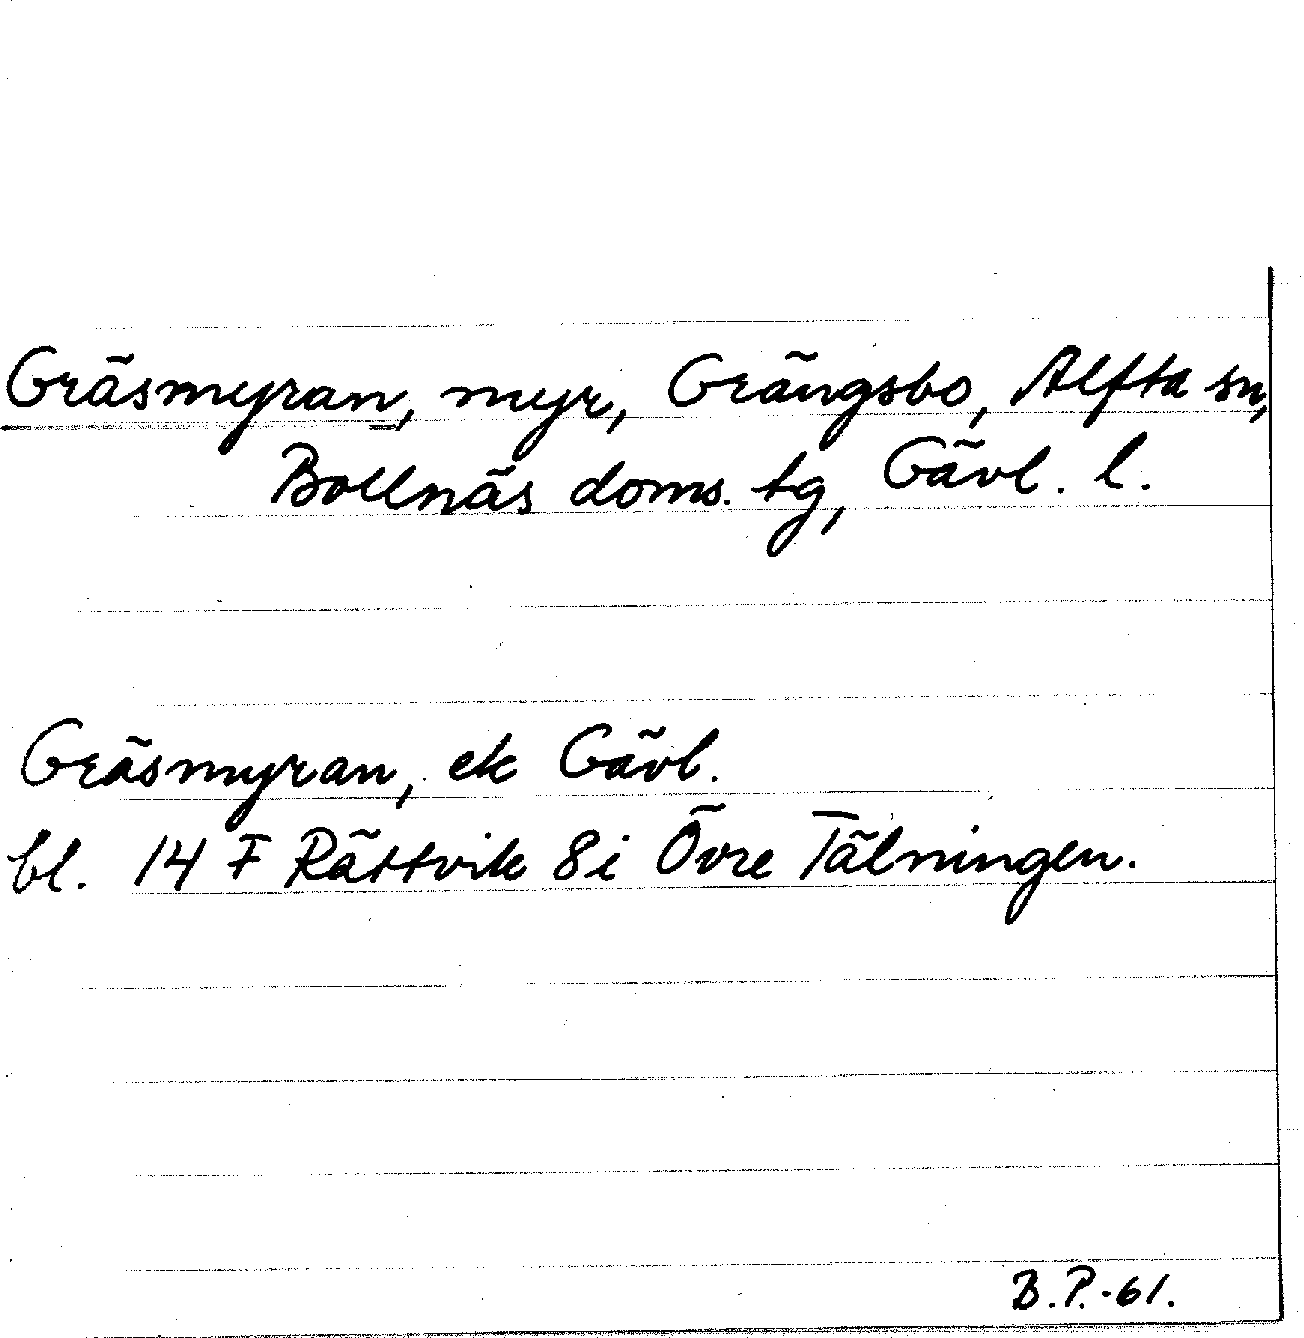 Gräsmyran, myr, Grängsbo, Alfta sn,
Bollnäs doms. tg, Gävl. l.
Gräsmyran, ek Gävl.
bl. 14 F Rättvik 8i Övre Tälningen.
B.P.-61.